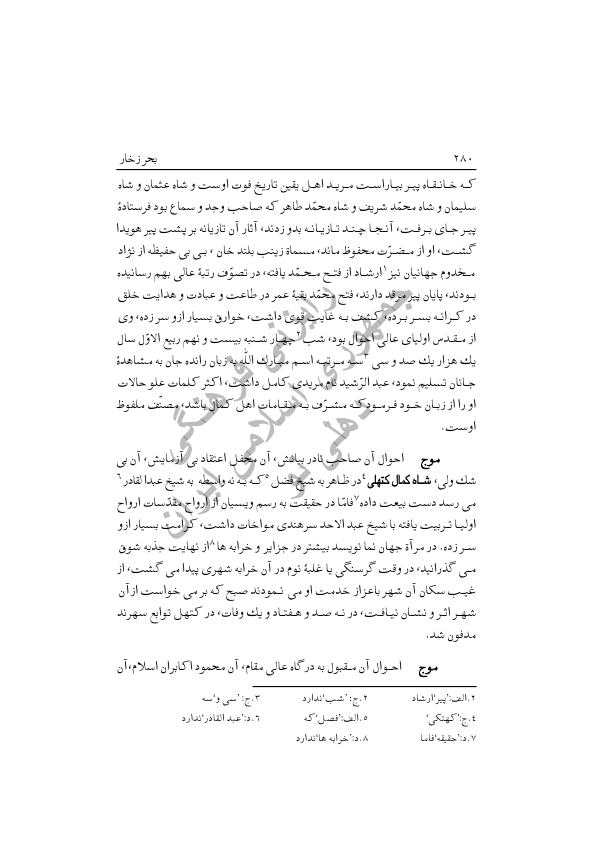 ۲۸۰ بحر زخار
كـه خـانـقـاه پيـر بيـاراسـت مـريـد اهـل يقين تاريخ فوت اوست و شاه عثمان و شاه
سليمان و شاه محمّد شريف و شاه محمّد طاهر كه صاحب وجد و سماع بود فرستادۀ
پيـر جـاى بـرفـت، آنجـا چنـد تـازيـانـه بدو زدند، آثار آن تازيانه بر پشت پير هويدا
گشـت، او از مـضـرّت محفوظ ماند، مسماة زينب بلند خان ، بى بى حفيظه از نژاد
مـخدوم جهانيان نيز۱ ارشاد از فتـح مـحـمّد يافته، در تصوّف رتبۀ عالى بهم رسانيده
بـودند، پايان پير مرقد دارند، فتح محمّد بقيۀ عمر در طاعت و عبادت و هدايت خلق
در كـرانـه بسـر بـرده، كشف بـه غايـت قوى داشت، خوارق بسيار ازو سر زده، وى
از مـقـدس اولياى عالى احوال بود، شب۲ چهـار شـنبه بيست و نهم ربيع الاوّل سال
يك هزار يك صد و سى ۳سـه مـرتبـه اسـم مبـارك اللّه به زبان رانده جان به مشاهدۀ
جـانان تسليم نمود، عبد الرّشيد نام مريدى كامـل داشت، اكثر كلمات علو حالات
او را از زبـان خـود فـرمـود كـه مشـرّف بـه مـقـامات اهل كمال باشد، مصنّف ملفوظ
اوست.
موج احوال آن صاحب نادر بيافش، آن محفل اعتقاد بى آزمايش، آن بى
شك ولى، شـاه كمال كتهلى۴در ظـاهر به شيخ فضل ۵كـه بـه نه واسطه به شيخ عبدا لقادر۶
مى رسد دست بيعت داده۷فامّا در حقيقت به رسم ويسيان از ارواح مقدّسات ارواح
اوليـا تـربيت يافته با شيخ عبد الاحد سرهندى مواخات داشت، كرامت بسيار ازو
سـر زده. در مرآة جهان نما نويسد بيشتر در جزاير و خرابه ها۸از نهايت جذبه شوق
مـى گذرانيد، در وقت گرسنگى يا غلبۀ نوم در آن خرابه شهرى پيدا مى گشت، از
غيـب سكان آن شهر باعزاز خدمت او مى نـمودند صبح كه بر مى خواست از آن
شهـر اثـر و نشـان نيـافـت، در نـه صـد و هـفتـاد و يك وفات، در كتهل توابع سهرند
مدفون شد.
موج احـوال آن مـقبول به درگاه عالى مقام، آن محمود اكابران اسلام، آن
۲.الف:'پير'ارشاد ۲.ج: 'شب'ندارد ۳.ج: 'سى و'سه
۴.ج:'كهتكى' ۵.الف:'فصل'كه ۶.د:'عبد القادر'ندارد
۷.د:'حقيقه'فاما ۸.د:'خرابه ها'ندارد